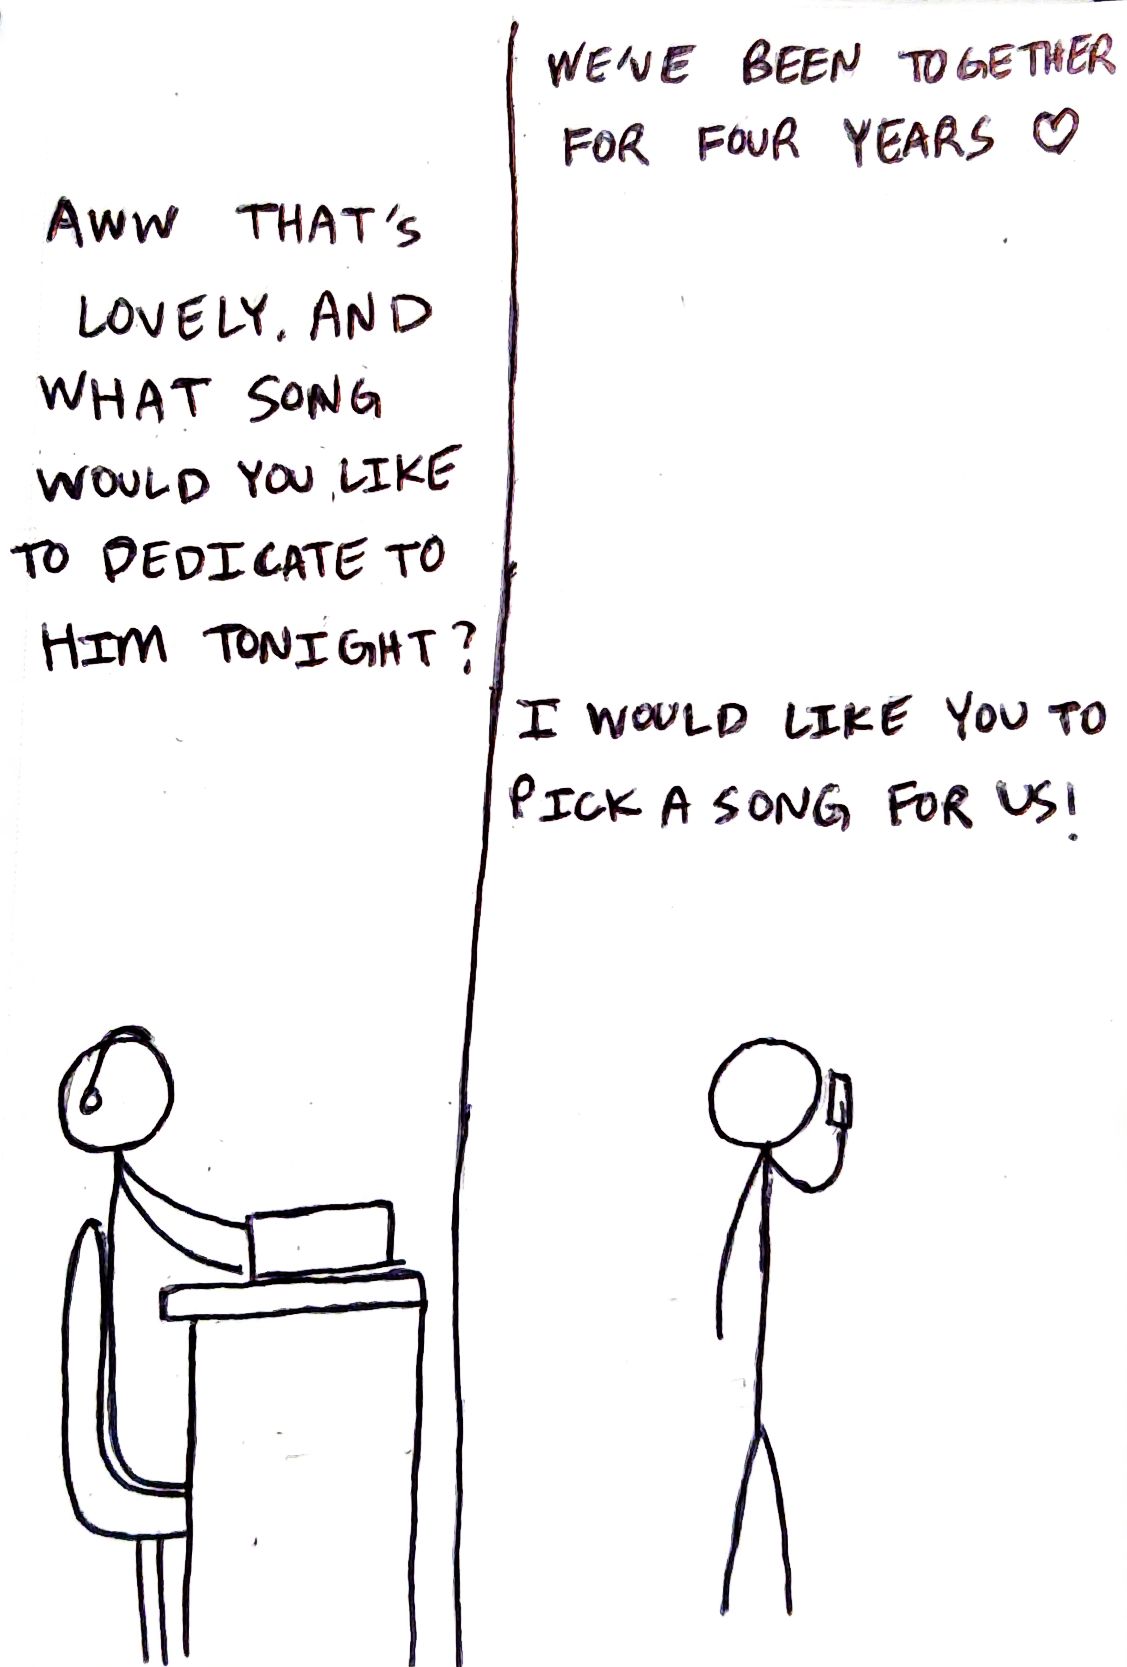 WE'VE BEEN TOGETHER
FOR FOUR YEARS ♡
AWW THAT'S
LOVELY. AND
WHAT SONG
WOULD YOU LIKE
TO DEDICATE TO
HIM TONIGHT?
I WOULD LIKE YOU TO
PICK A SONG FOR US!